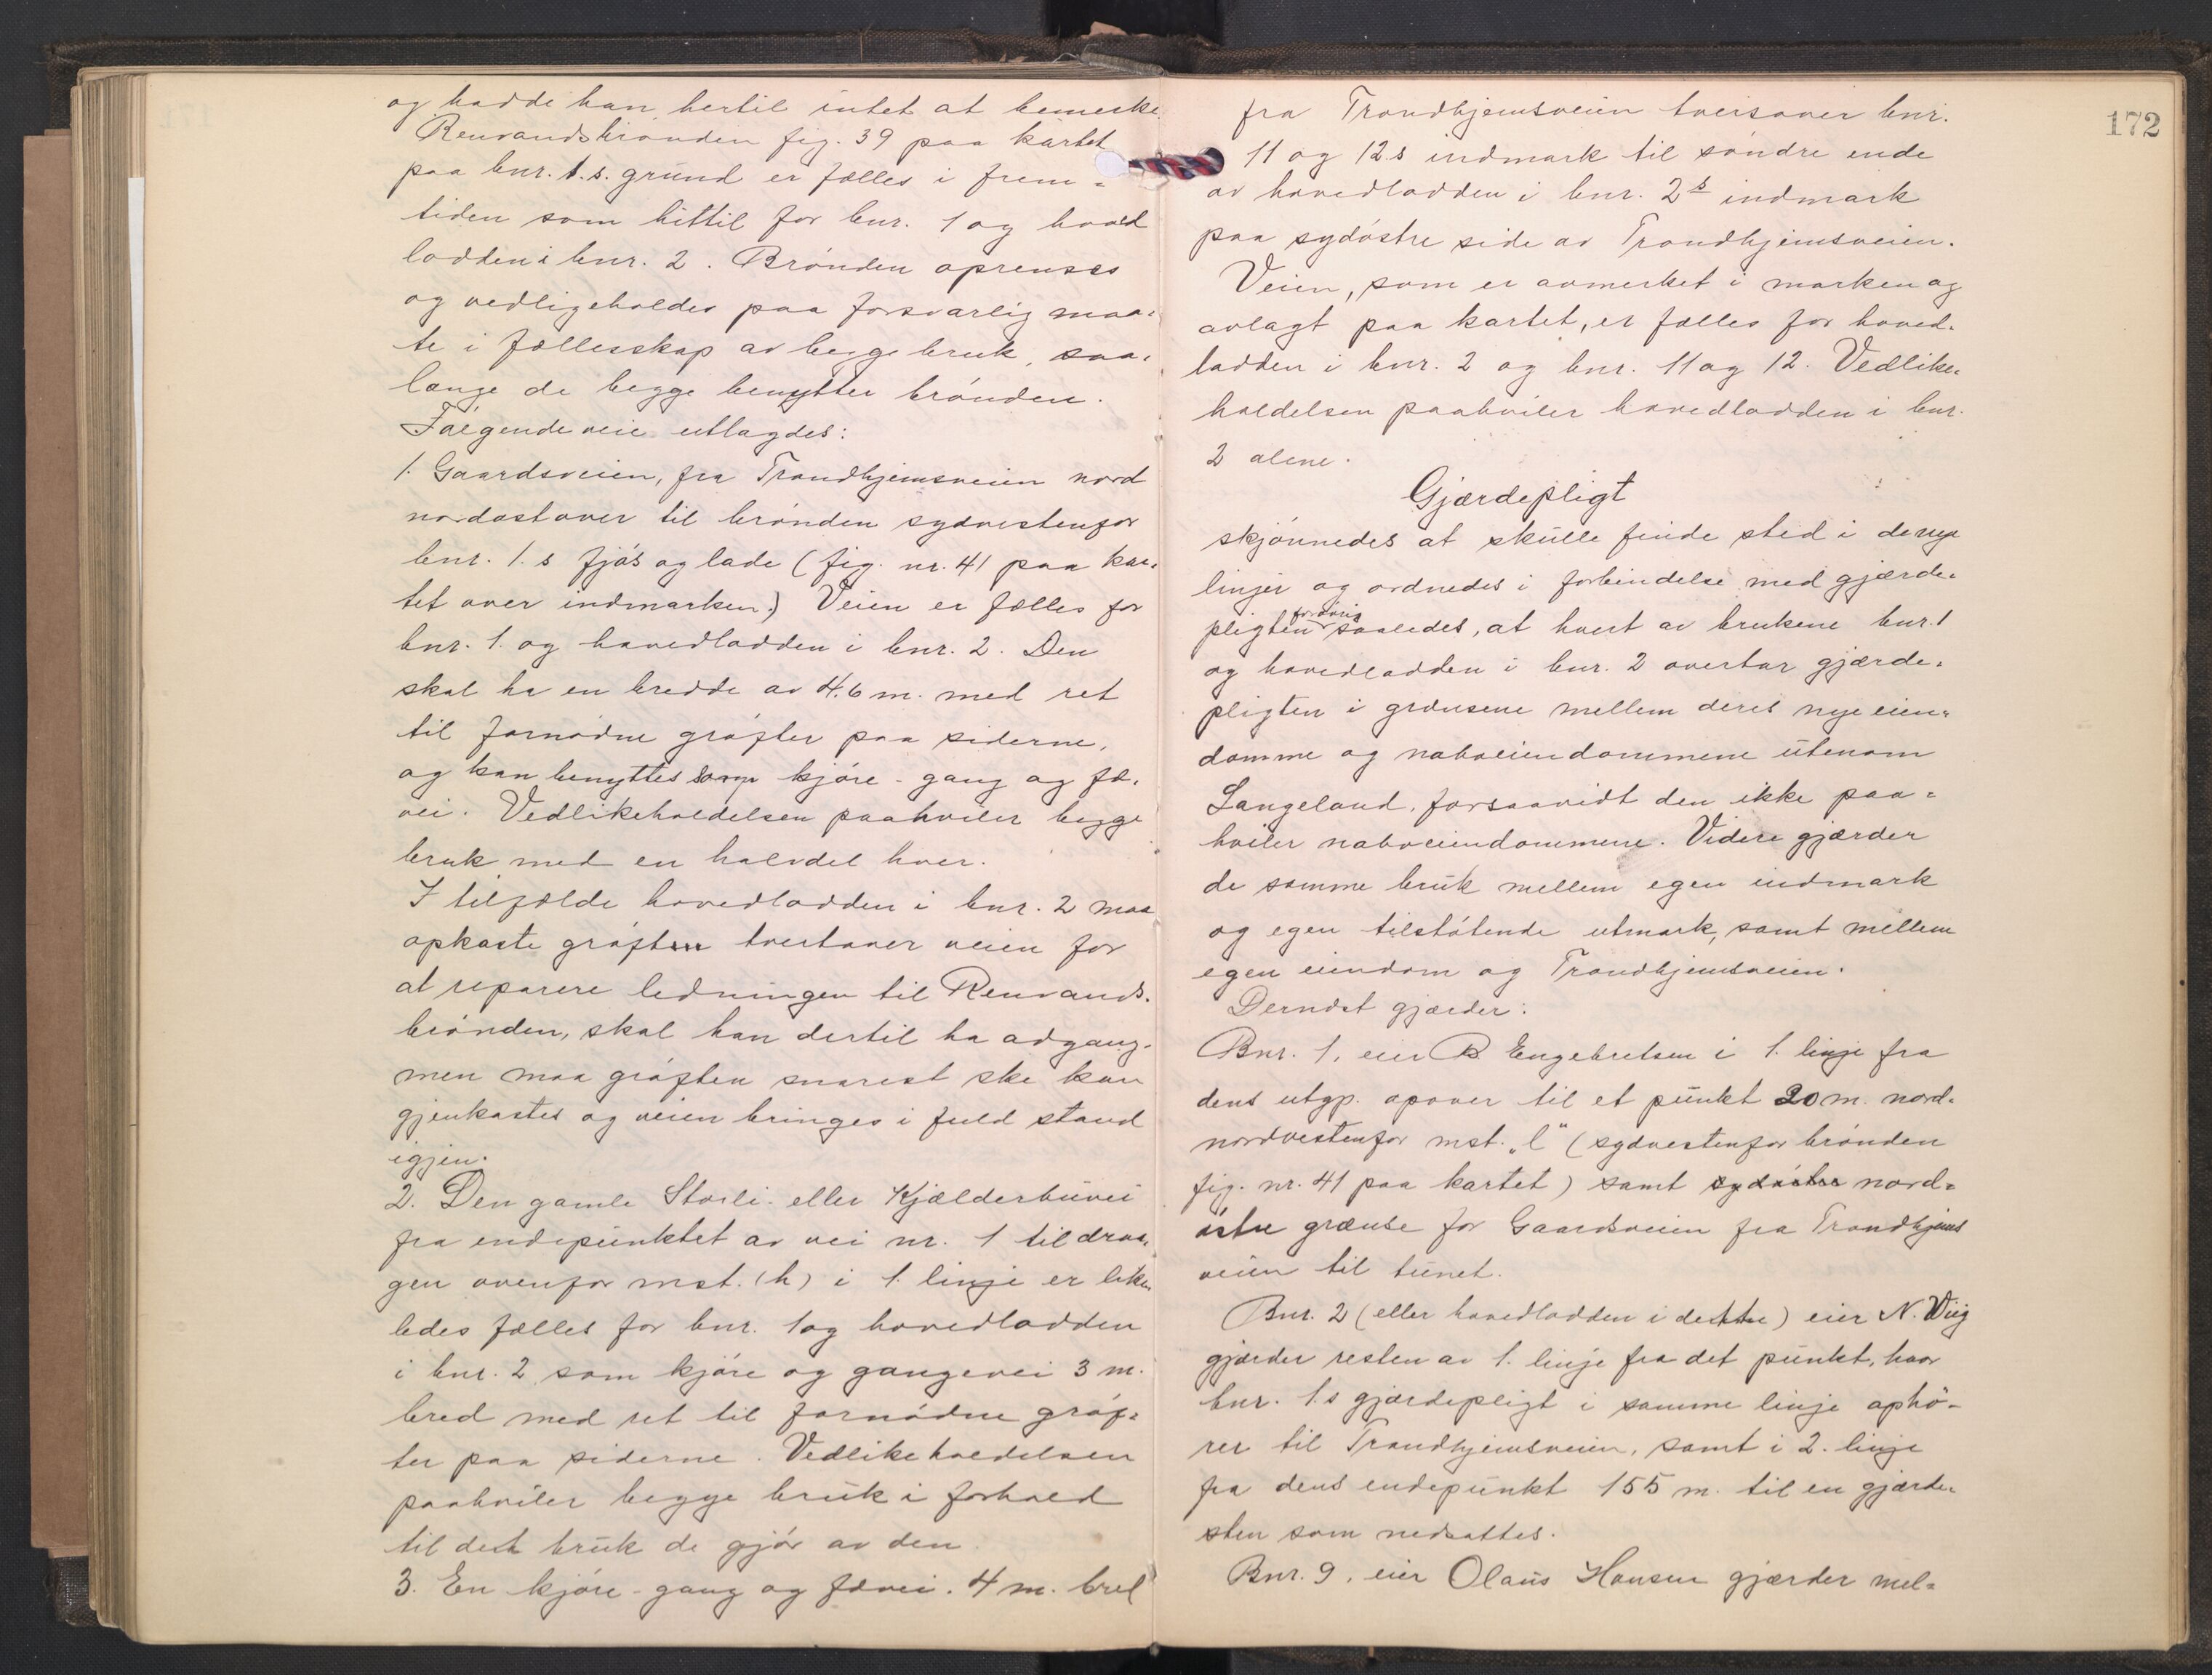 og hadde han hertil intet at bemerke.
Renvandsbrønden fig. 39 paa kartet
paa bnr. 1.s. grund er fælles i frem-
tiden som hittil for bnr. 1 og hoved
lodden i bnr. 2. Brønden oprenses
og vedligeholdes paa forsvarlig maa-
te i fællesskap av begge bruk, saa-
længe de begge benytter brønden.
Følgende veie utlagdes:
1. Gaardsveien, fra Trondhjemsveien nord
nordostover til brønden sydvestenfor
bnr. 1.s fjøs og lade (fig. nr. 41 paa kar-
tet over indmarken.) Veien er fælles for
bnr. 1. og hovedlodden i bnr. 2. Den
skal ha en bredde av 4.6 m. med ret
til fornødne grøfter paa siderne,
og kan benyttes som kjøre- gang og fæ-
vei. Vedlikeholdelsen paahviler begge
bruk med en halvdel hver.
I tilfælde hovedlodden i bnr. 2 maa
opkaste grøften tvertover veien for
at reparere ledningen til Renvands-
brønden, skal han dertil ha adgang.
men maa grøften snarest ske kan
gjenkastes og veien bringes i fuld stand
igjen.
2. Den gamle Storli- eller Kjælderbuvei
fra endepunktet av vei nr. 1 til draa-
gen ovenfor mst. (h) i 1. linje er like-
ledes fælles for bnr. 1 og hovedlodden
i bnr. 2 som kjøre og gangevei 3 m.
bred med ret til fornødne grøf-
ter paa siderne. Vedlikeholdelsen
paahviler begge bruk i forhold
til det bruk de gjør av den.
3. En kjøre- gang og fævei. 4 m. bred
172
fra Trondhjemsveien tversover bnr.
11 og 12.s indmark til søndre ende
av hovedlodden i bnr. 2s indmark
paa sydøstre side av Trondhjemsveien.
Veien, som er avmerket i marken og
avlagt paa kartet, er fælles for hoved-
lodden i bnr. 2 og bnr. 11 og 12. Vedlike-
holdelsen paahviler hovedlodden i bnr.
2 alene.
Gjærdepligt
skjønnedes at skulle finde sted i de nye
linjer og ordnedes i forbindelse med gjærde-
forøvrig
pligten saaledes, at hvert av brukene bnr. 1
og hovedlodden i bnr. 2 overtar gjærde-
pligten i grænsene mellem deres nye eien-
domme og naboeiendommene utenom
Langeland, forsaavidt den ikke paa-
hviler naboeiendommene. Videre gjærder
de samme bruk mellem egen indmark
og egen tilstøtende utmark, samt mellem
egen eiendom og Trondhjemsveien.
Dernæst gjærder:
Bnr. 1, eier B. Engebretsen i 1. linje fra
dens utgp. opover til et punkt 20 m. nord-
nordvestenfor mst. „l" (sydvestenfor brønden
fig. nr. 41 paa kartet) samt sydøstre nord-
østre grænse for Gaardsveien fra Trondhjems
veien til tunet.
Bnr. 2 (eller hovedlodden i dette) eier N. Wiig
gjærder resten av 1. linje fra det punkt, hvor
bnr. 1.s gjærdepligt i samme linje ophø-
rer til Trondhjemsveien, samt i 2. linje
fra dens endepunkt 155 m. til en gjærde-
sten som nedsattes.
Bnr. 9, eier Olaus Hansen gjærder mel-